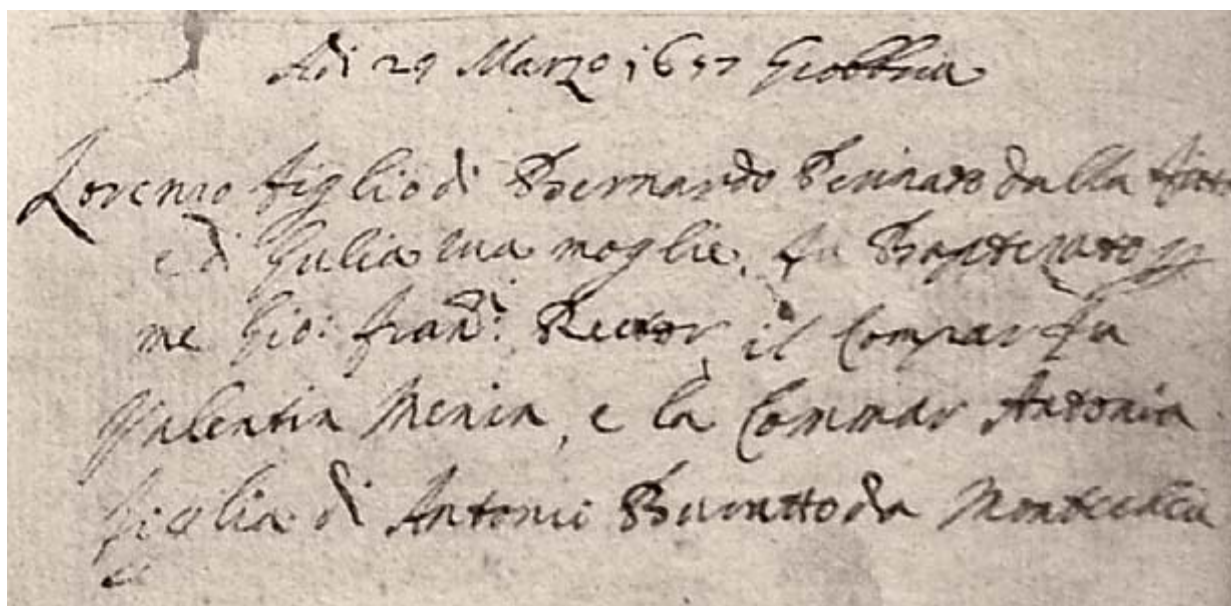 Adi 29 Marzo 1657 Giobbia
Lorenzo figlio di Bernardo dalla
e di Giulia sua moglie, fu Baptezato p
me Gio: Fran: Rector, il Compar fu
Valentin Menin, e la Commar Antonia
figlia di Antonio da